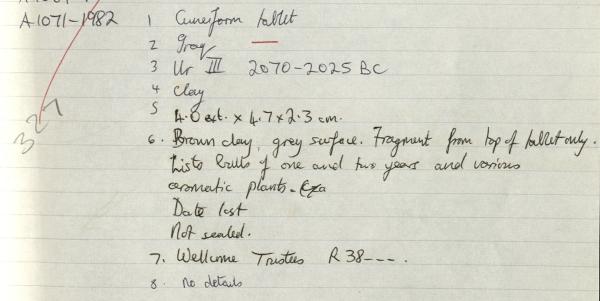 A1071-1982 1 Cuneiform tablet
2 Iraq
3 Ur III 2070-2025 BC
4 Clay
5 4.0 ext. x 4.7 x 2.3 cm.
327
6. Brown clay, grey surface. Fragment from top of tablet only.
Lists bulls of one and two years and various
aromatic plants.
Date lost
Not sealed.
7. Wellcome Trustees R38----.
8. no details